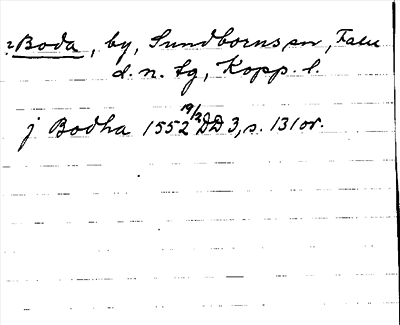 2 Boda, by, Sundborns sn, Falu
d. n. tg, Kopp. l.
j Bodha 1552 19/2 DD 3, s. 131 or.